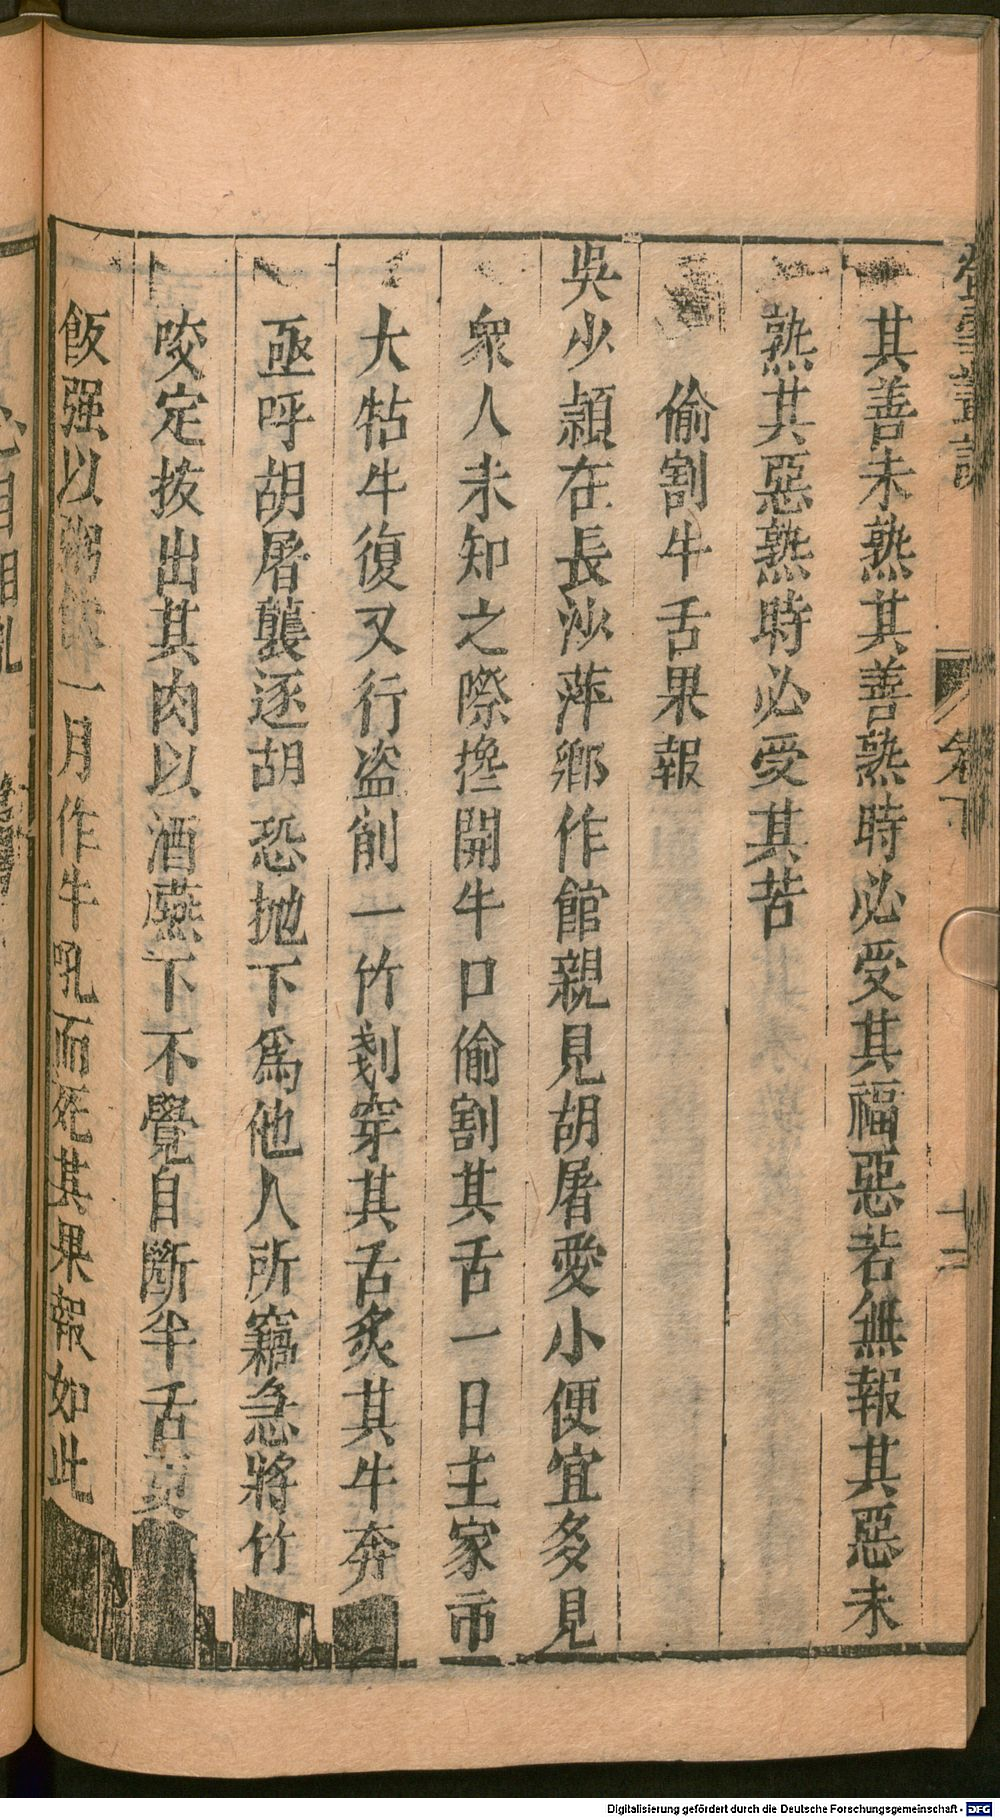 其善未熟其善熟時必受其福惡若無報其惡未
熟其惡熟時必受其苦
偷割牛舌果報
吳少頴在長沙萍鄉作館親見胡屠愛小便宜多見
衆人未知之際攙開牛口偷割其舌一日主家市
大牯牛復又行盗削一竹剗穿其舌炙其牛奔
亟呼胡屠襲逐胡恐抛下爲他人所竊急將竹
咬定拔出其肉以酒嚥下不覺自斷半舌
飯强以粥一月作牛吼而死其果報如此
螢雪叢説
卷下
十二
Digitalisierung gefördert durch die Deutsche Forschungsgemeinschaft - DFG